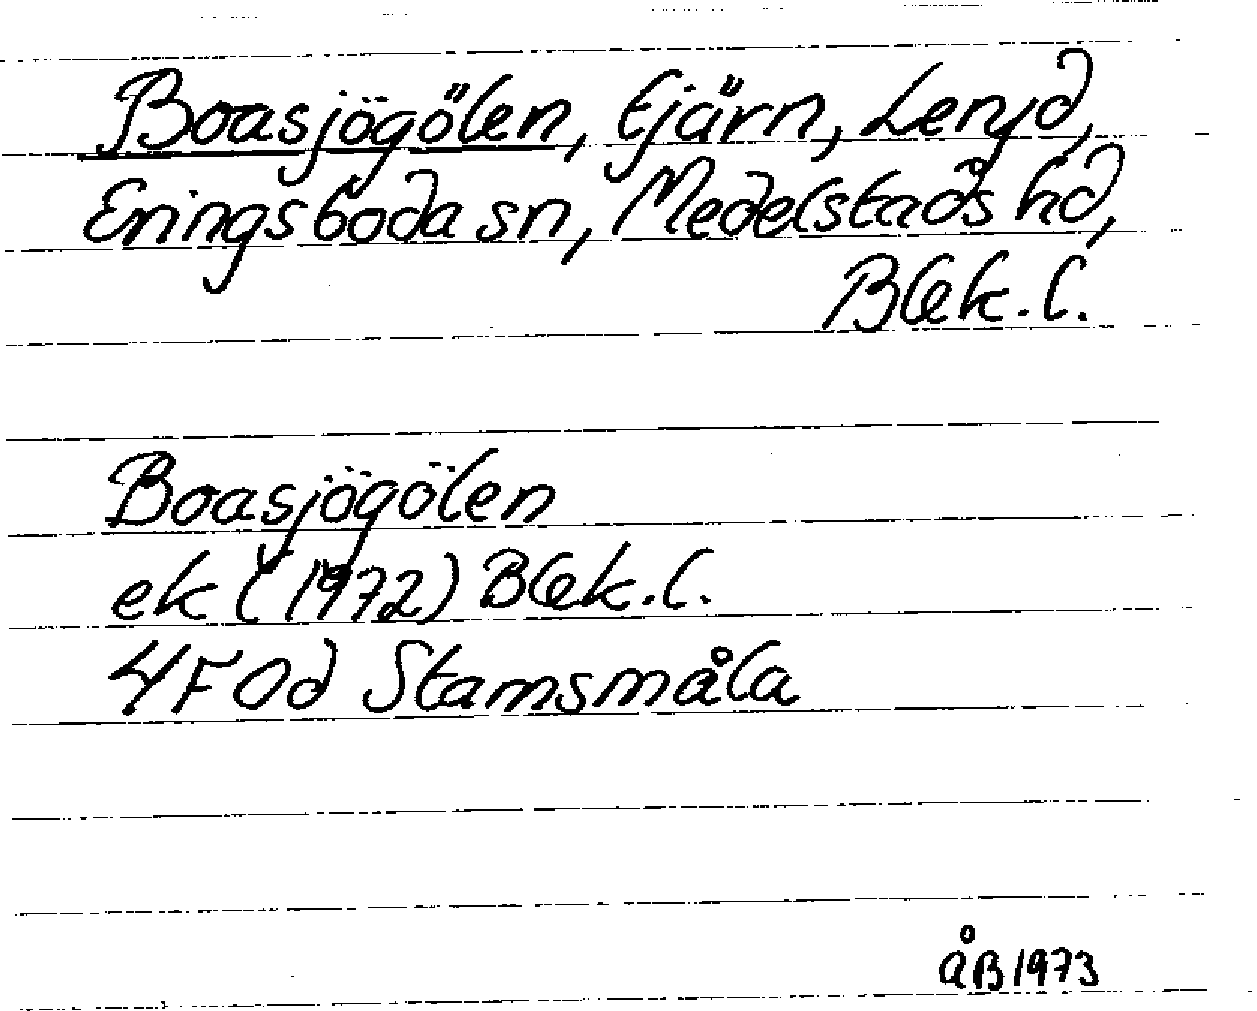 Boasjögölen, tjärn, Leryd,
Eringsboda sn, Medelstads hd,
Blek. l.
Boasjögölen
ek (1972) Blek. l.
4F0d Stamsmåla
ÅB 1973